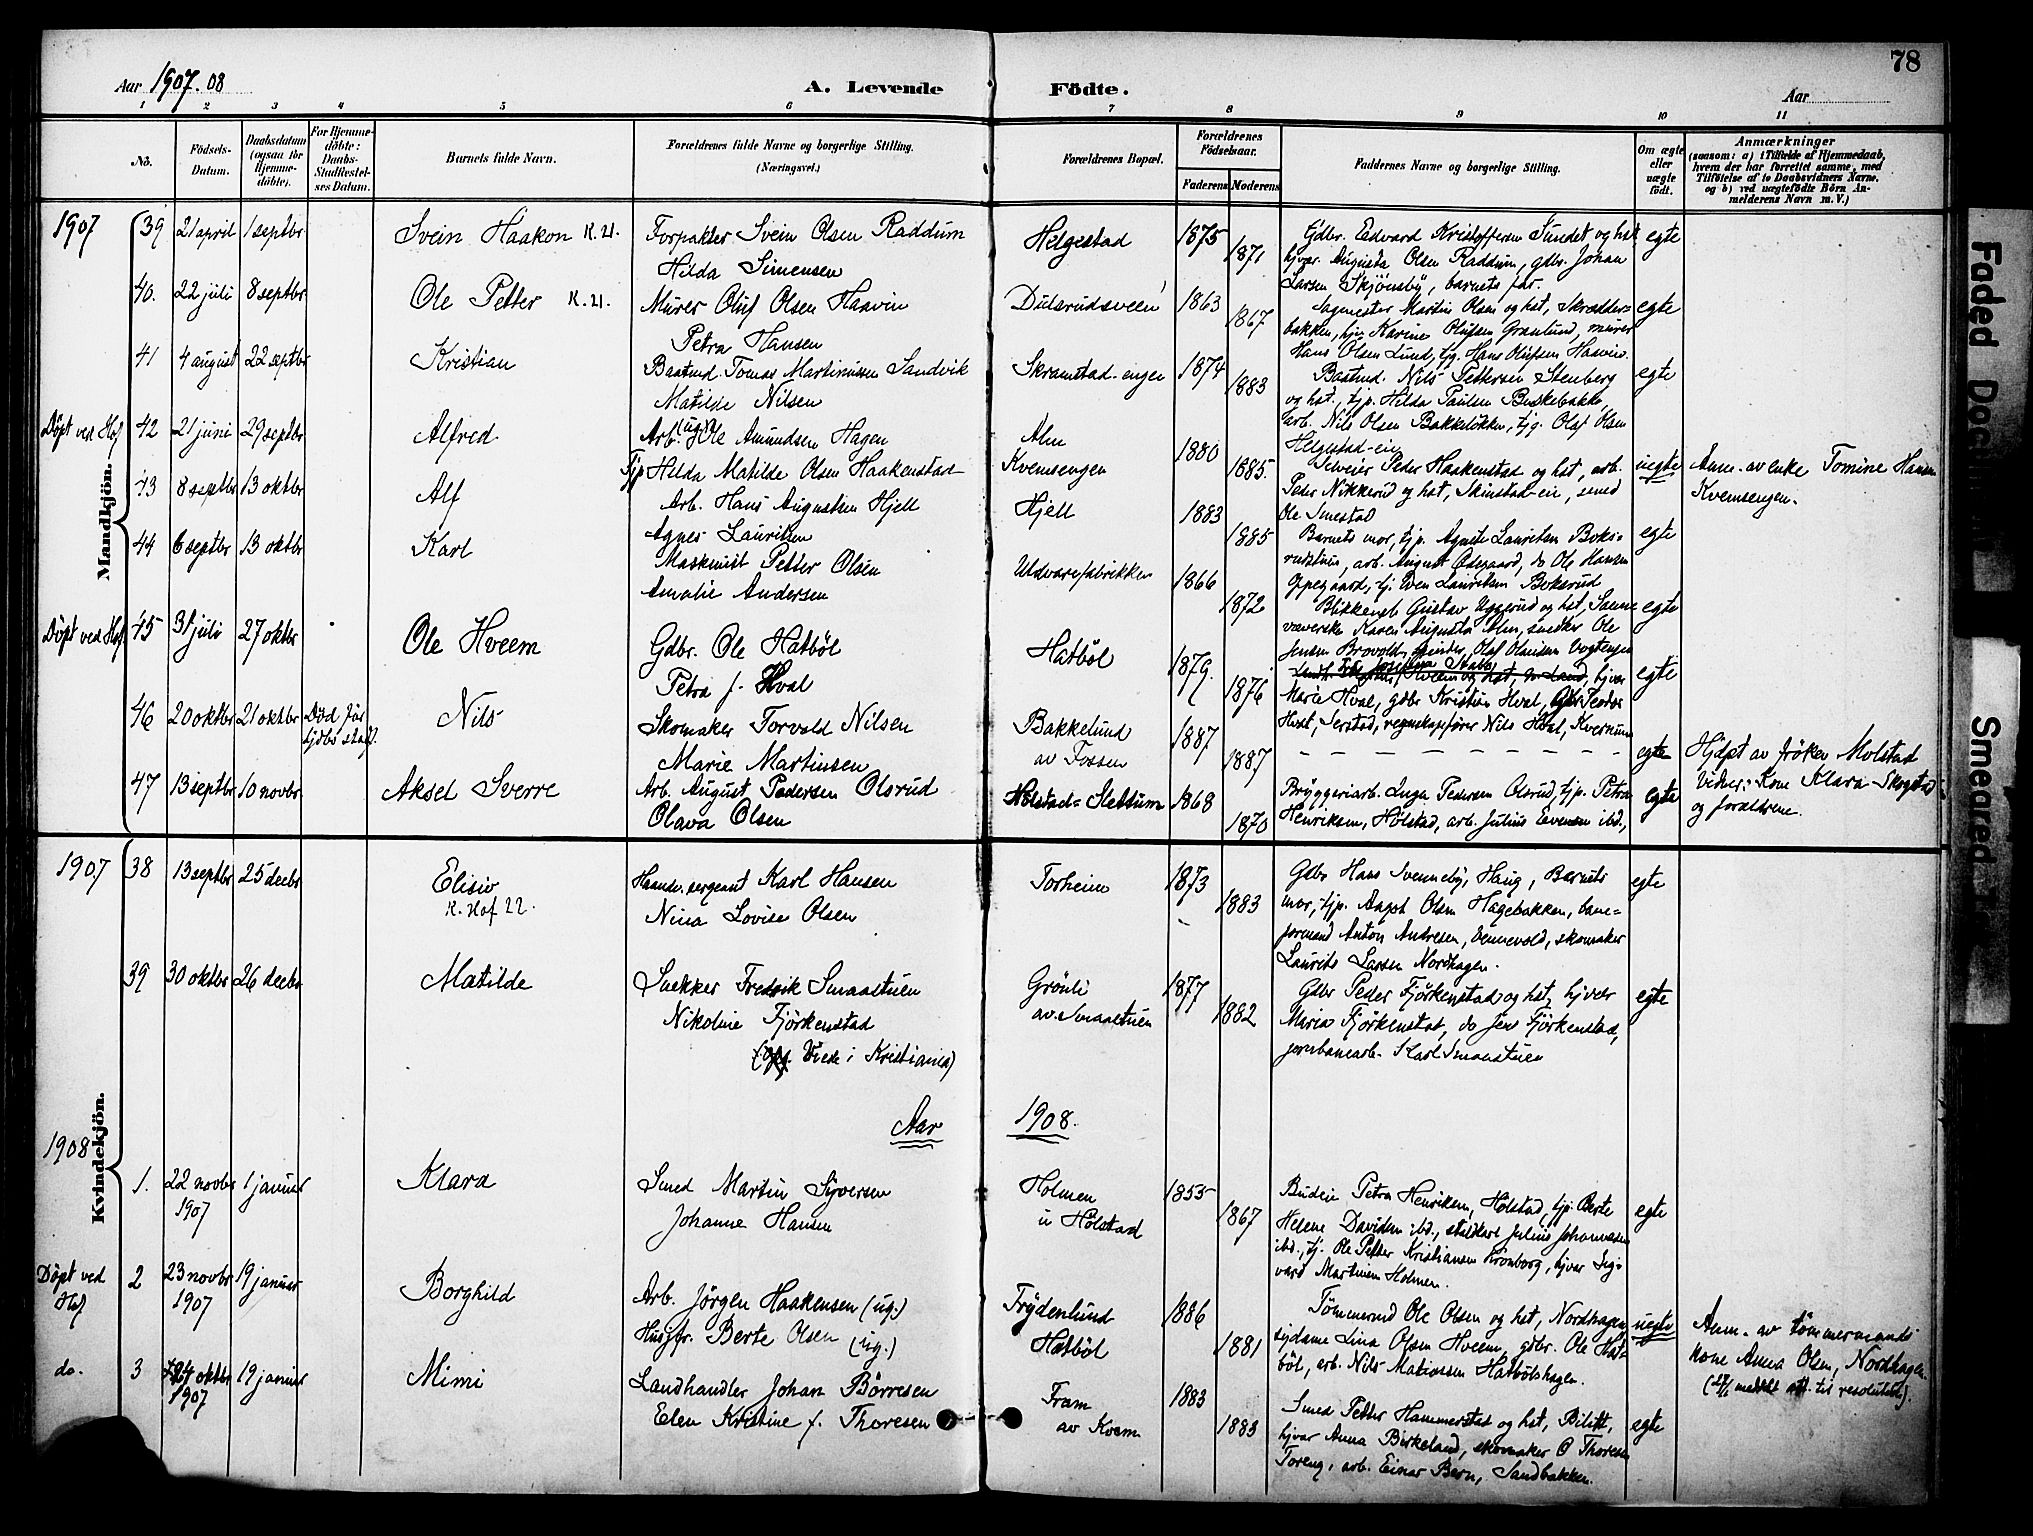 78
Aar 1907.08
A. Levende
Födte.
Aar
1 2 3 4 5 6 7 8 9 10 11
No.
Födsels-Datum.
Daabsdatum (ogsaa for Hjemme-döbte).
For Hjemme-döbte: Daabs-Stadfæstel-ses Datum.
Barnets fulde Navn.
Forældrenes fulde Navne og borgerlige Stilling. (Næringsvei.)
Forældrenes Bopæl.
Forældrenes Födselsaar.
Faderens Moderens
Faddernes Navne og borgerlige Stilling.
Om ægte eller uægte födt.
Anmærkninger
(saasom: a) i Tilfælde af Hjemmedaab, hvem der har forrettet samme, med Tilföielse af to Daabsvidners Navne, og b) ved uægtefödte Börn An-melderens Navn m. V.)
Mandkjön.
1907
39 21 april 1 septbr Svein Haakon K. 21.
Forpakter Svein Olsen Raddum
Hilda Simensen
Helgestad 1875 1871
Gdbr. Edvard Kristoffersen Sundet og hst
hjvar. Augusta Olsen Raddum, gdbr. Johan
Larsen Skjønsby, barnets far.
egte
40. 22 juli 8 septbr Ole Petter K. 21.
Murer Oluf Olsen Haavin
Petra Hansen
Dulsrudsveen 1863 1867
Sagmester Martin Olsen og hst, Skrædder-
bakken, tjp. Karine Olufsen Granlund, murer
Hans Olsen Lund, tjg. Hans Olufsen Haavin.
egte
41 4 august 22 septbr Kristian
Baatmd. Tomas Martinussen Sandvik
Matilde Nilsen
Skramstad-enger 1874 1883
Baatmd. Nils Pettersen Stenberg
og hst., tjp. Hilda Paulsen Buskebakke,
arb. Nils Olsen Bakkeløkken, tjg. Olaf Olsen
Helgestad-eie
egte
Döpt ved Hof 42 21 juni 29 septbr Alfred
Arb. (ug.) Ole Amundsen Hagen
Tjp Hilda Matilde Olsen Haakenstad
Alm
Kvemsengen
1880 1885.
Peder Haakenstad og hst, arb.
Peder Nikkerud og hst, Skinstad-eie, smed
Ole Smestad
uegte
Anm. av enke Tomine Hansen
Kvemsengen.
43 8 septbr 13 oktbr Alf
Arb. Hans Augustsen Hjell
Agnes Lauritsen
Hjell 1883 1885
Barnets mor, tjp. Agnete Lauritsen Boks-
rudstuen, arb. August Ødegaard, do Ole Hansen
Oppegaard, tj. Even Lauritsen Bokserud
egte
44 6 septbr 13 oktbr Karl
Maskinist Petter Olsen
Amalie Andersen
Uldvarefabrikken 1866 1872
Blikkensl. Gustav Uggerud og hst, Samme
væverske Karen Augusta Alm, snedker Ole
Jensen Brovold, Olaf Olausen
egte
Döpt ved Hof 45 31 juli 27 oktbr Ole Hveem
Gdbr. Ole Hatböl
Petra f. Hval
Hatböl 1879. 1876
Marie Hval, gdbr Kristian Hval, Gdbr Teodor
Hval, Serstad, regnskapsfører Nils Hval, Kvernum
egte
46 20 oktbr 21 oktbr Død før
Nils
Skomaker Torvald Nilsen
Marie Martinsen
Bakkelund
av Fossen
1887 1887
egte
Hjdpt av frøken Molstad
Vidner: Kone Klara Skogstad
og forældrene.
47 13 septbr 10 novbr Aksel Sverre
Arb. August Pedersen Olsrud
Olava Olsen
Hölstad-Slettum 1868 1870
Bryggeriarb. Inga Pedersen Olsrud, tjp. Petra
Henriksen, Hölstad, arb. Julius Evensen ibd.,
egte
Kvindekjön.
1907
38 13 septbr 25 decbr Elisiv
K. Hof 22.
Haandv. sergeant Karl Hansen
Nina Lovise Olsen
Torheim 1873 1883
Gdbr Hans Svenneby, Haug, Barnets
mor, tjp. Aagot Olsen Hagebakken, bane-
formand Anton Andresen, Vennevold, skomaker
Laurits Larsen Nordhagen.
egte
39 30 oktbr 26 decbr Matilde
Snekker Fredrik Smaastuen
Nikoline Fjörkenstad
(Viede i Kristiania)
Grönli
av Smaastuen
1877 1882
Gdbr Peder Fjörkenstad og hst, hjvar
Maria Fjörkenstad, do Jens Fjörkenstad,
jernbanearb. Karl Smaastuen
egte
Aar 1908.
1908
1. 22 novbr 1907 1 januar Klara
Smed Martin Syversen
Johanne Hansen
Holmen
u Hölstad
1855 1867
Budeie Petra Henriksen, Hölstad, tjp. Berte
Helene Davidsen ibd., staldkarl Julius Johannesen
ibd., tj. Ole Petter Kristiansen Kronborg, hjvar Sig-
vard Martinsen Holmen.
egte
Döpt ved Hof 2 23 novbr 1907 19 januar Borghild
Arb. Jörgen Haakensen (ug.)
Husjfr. Berte Olsen (ug.)
Frydenlund
Hatböl
1886 1881
Tömmermd Ole Olsen og hst, Nordhagen
sydame Lina Olsen Hveem, gdbr. Ole Hat-
böl, arb. Nils Mathiassen Hatbölshagen.
uegte
Anm. av tömmermands
kone Anna Olsen, Nordhagen.
til resolution).
do. 3 oktbr 1907 19 januar Mimi
Landhandler Johan Börresen
Elen Kristine f. Thoresen
Fram
av Kvem
1883 1883
Smed Petter Hammerstad og hst, Bilitt,
hjvar Anna Birkeland, skomaker O Thoresen
Toreng, arb. Einar Bern, Sandbakken.
egte
Faded Doc
Smeared